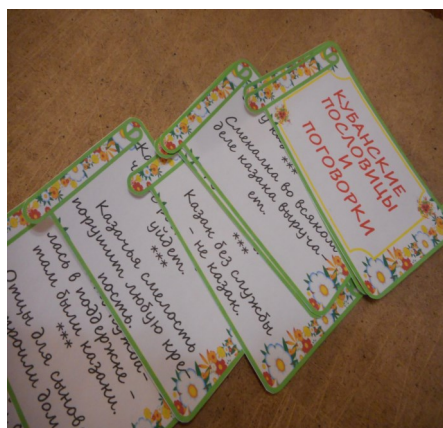 КУБАНСКИЕ
ПОСЛОВИЦЫ
И
ПОГОВОРКИ
***
Смекалка во всяком
деле казака выруча-
ет.
***
Казак без службы
– не казак.
уйдет.
***
Казачья смелость
порушит любую кре-
пость.
лась в поддержке –
там были казаки.
***
Отцы для сынов
дом